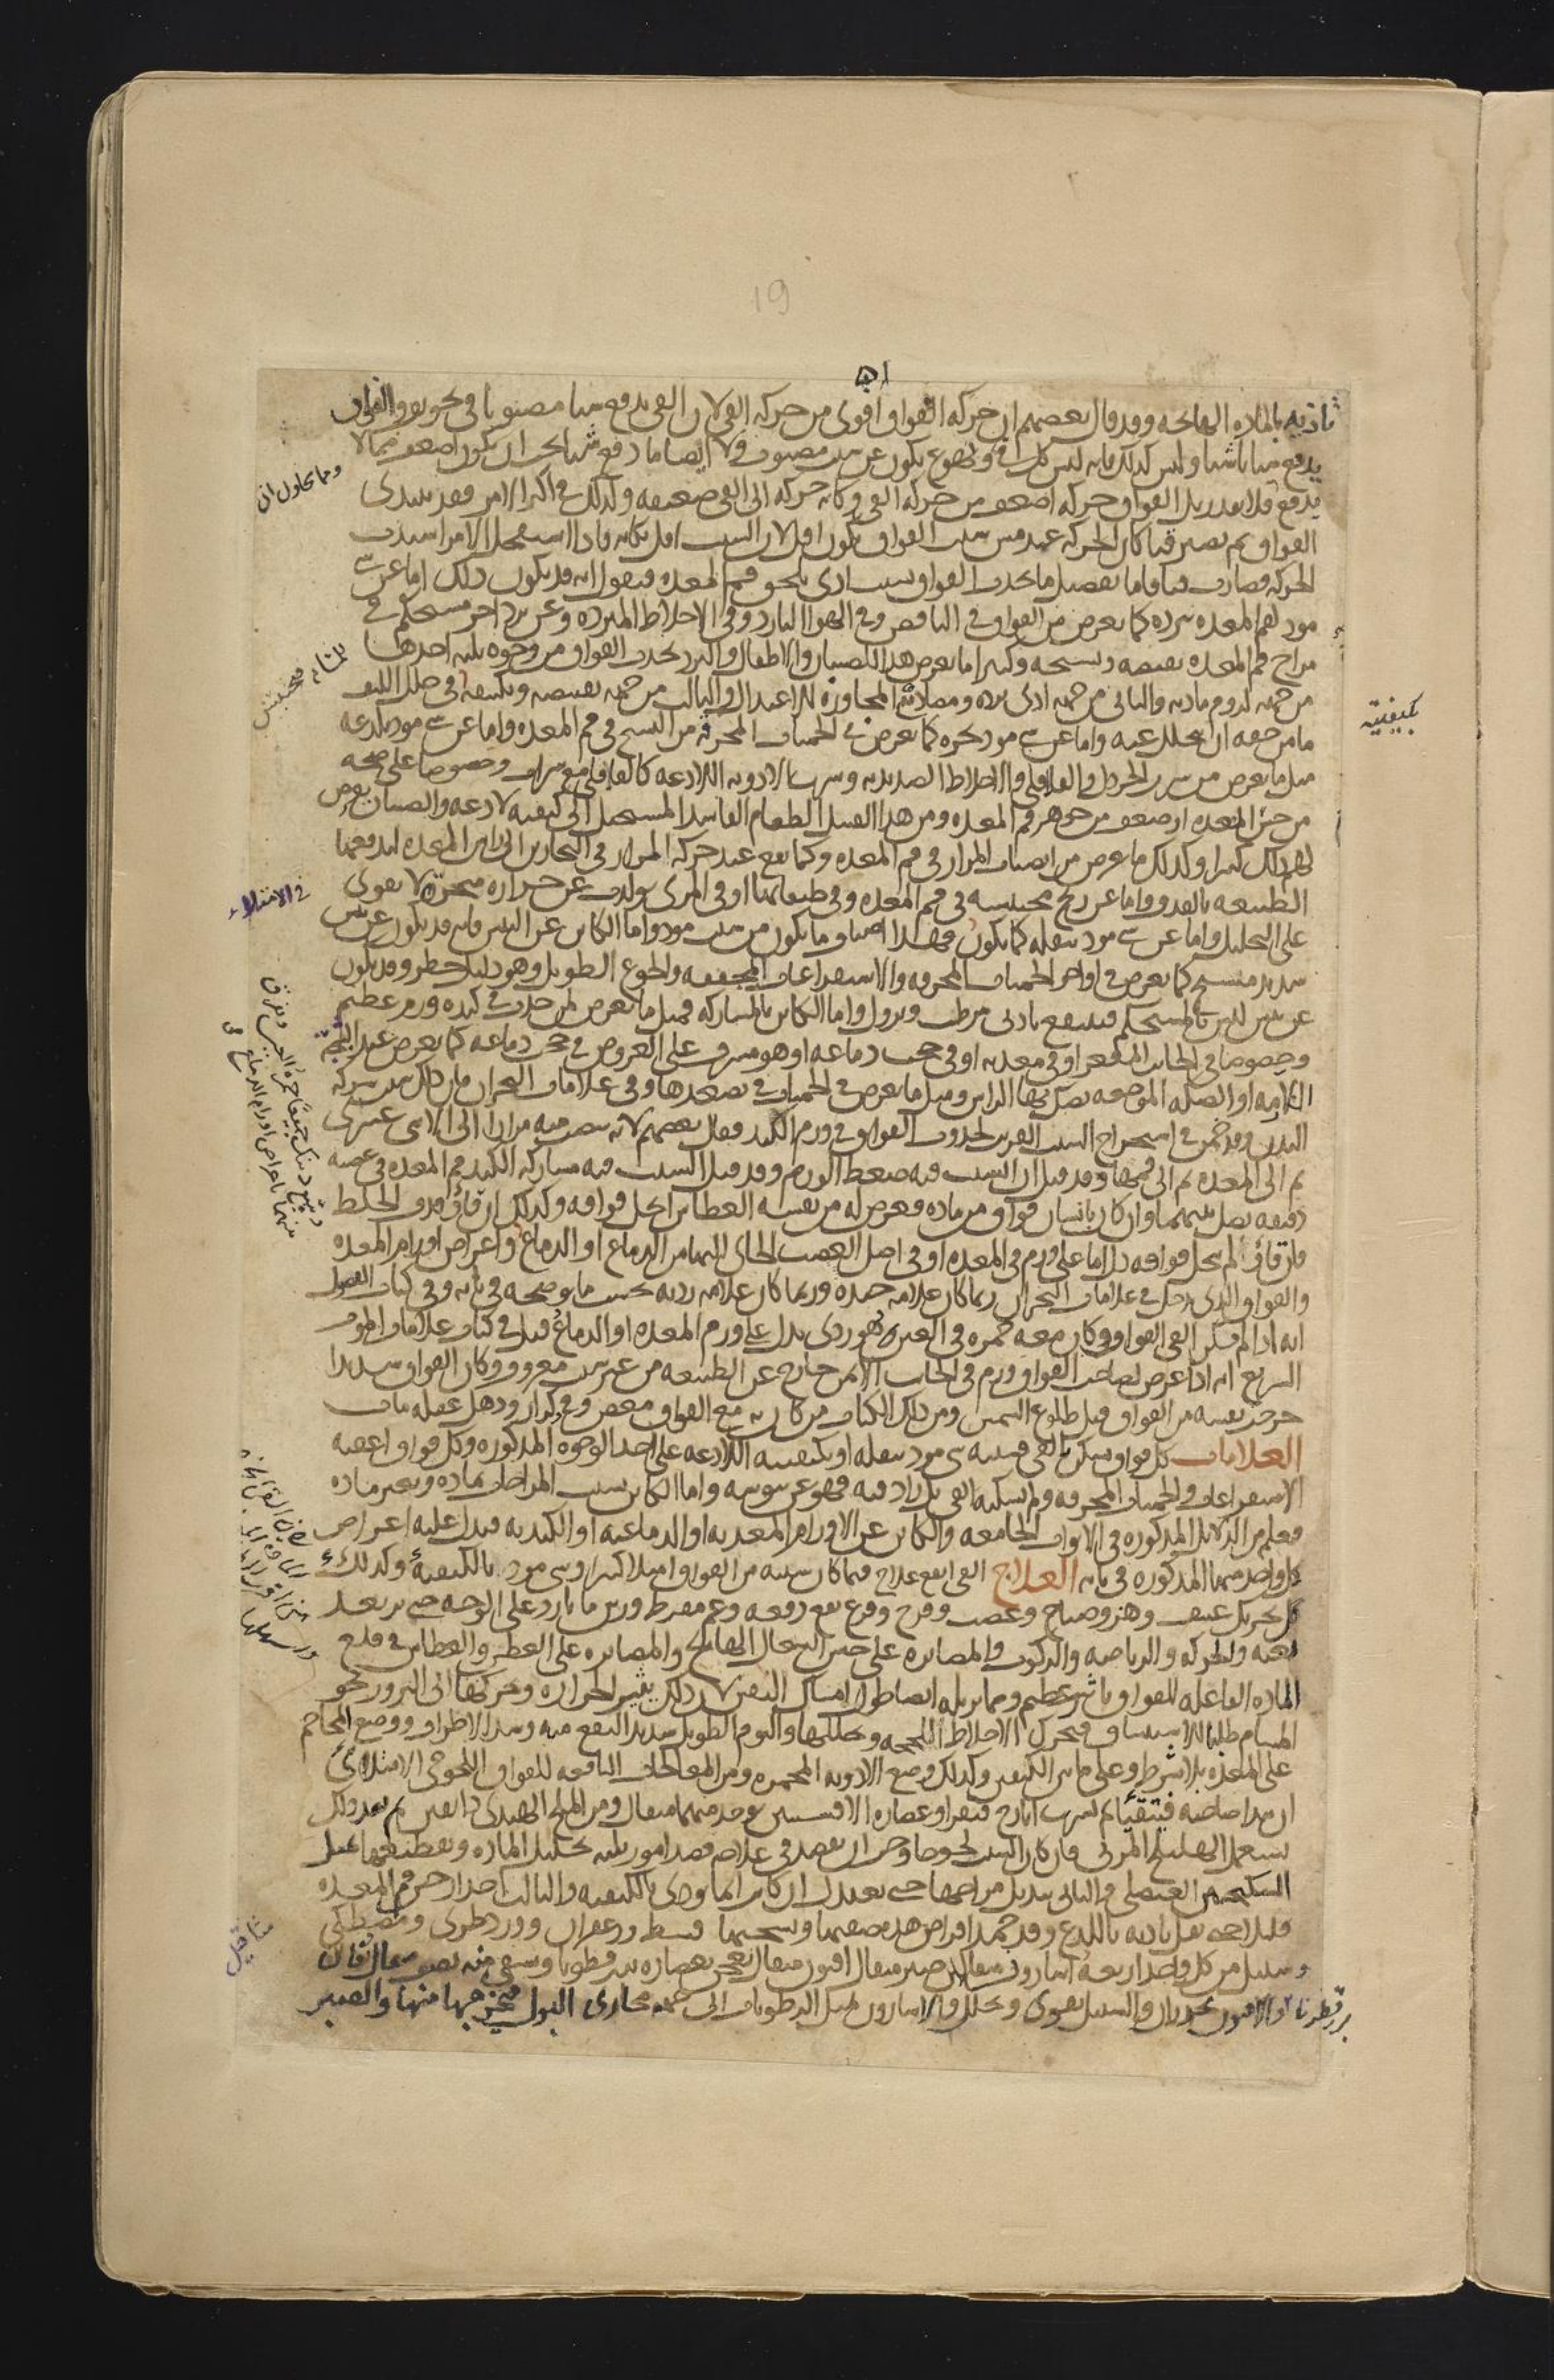 19
تاذيه بالماده الهائجه وقد قال بعضهم ان حركه الفواق اقوى من حركه القي لان القي يدفع شيا مصبوبا في تجويف والفواق
يدفع شيا ناشبا وليس كذلك فانه ليس كل قي وتهوع يكون عن سبب مصبوب ولا ايضا ما دفع شيا يجب ان يكون اضعف مما لا
وما يحاول ان
يدفع فلا يقدر بل الفواق حركه اضعف من حركه القي وكانه حركه الى القي ضعيفه وكذلك في اكثر الامر فقد يبتدى
الفواق ثم يصير قيا كان الحركه عند مس سبب الفواق تكون اقل لان السبب اقل نكايه فاذا استعجل الامر اشتدت
الحركه فصارت قيا واما تفصيل ما يحدث الفواق بسبب اذى يلحق فم المعده فنقول انه قد يكون ذلك اما عن شي
موذ لفم المعده ببرده كما يعرض من الفواق في النافض وفي الهوا البارد وفي الاخلاط المبرده وعن برد اخر مستحكم في
مزاج فم المعده يقبضه ويشنجه وكثيرا ما يعرض هذا للصبيان والاطفال والبرد يحدث الفواق من وجوه ثلثه احدها
من جهه لزوم ماديه والثاني من جهه اذى برده ومضادته المجاوزه للاعتدال والثالث من جهه تقبيضه وتكثيفه في خلل الليف
بكيفيته
ما من حقه ان يتحلل عنه واما عن شي موذ بحره كما يعرض في الحميات المحرقه من التشنج في فم المعده واما عن شي موذ بلذعه
مثل ما يعرض من شرب الخردل والفلافلي والاخلاط الصديديه وشرب الادويه اللاذعه كالفلافلي مع شراب وخصوصا على صحه
من حس المعده او ضعف من جوهر فم المعده ومن هذا القبيل الطعام الفاسد المستحيل الى كيفيه لاذعه والصبيان يعرض
لهم ذلك كثيرا وكذلك ما عرض من انصباب المرار في فم المعده وكما يقع عند حركه المرار في البحارين الى راس المعده ليدفعها
الطبيعه بالقذف واما عن ريح محتبسه في فم المعده وفي طبقاتها او في المري تولدت عن حراره مبخره لا تقوى
على التحليل واما عن شي موذ بثقله كما يكون
في الامتلاء
فهذا اصناف ما يكون من سبب موذ واما الكاين عن اليبس فانه قد يكون عن يبس
شديد مشنج كما يعرض في اواخر الحميات المحرقه والاستفراعات المجففه والجوع الطويل وهو دليل خطر وقد يكون
عن يبس ليس بالمستحكم فينتفع بادنى مرطب ويزول واما الكاين بالمشاركه فمثل ما يعرض لمن حدث في كبده ورم عظيم
وخصوصا في الجانب المقعر او في معدته او في حجب دماغه او هو مشرف على العروض في حجب دماغه كما يعرض عند الشجه
الامه او الصكه الموجعه يصك بها الراس ومثل ما يعرض في الحميات في تصعدها وفي علامات البحران فان ذلك سبب شركه
البدن وقد خمن في استخراج السبب القريب لحدوث الفواق في ورم الكبد فقال بعضهم لانه ينصب منه مرار الى الاثنى عشرى
ثم الى المعده ثم الى فمها وقد قيل ان السبب فيه ضغط الورم وقد قيل السبب فيه مشاركه الكبد فم المعده في عصبه
دقيقه تصل بينهما وان كان بانسان فواق من ماده فعرض له من نفسه العطاس انحل فواقه وكذلك ان قاء وقذف الخلط
فان قاء لم ينحل فواقه دل اما على ورم في المعده او في اصل العصب الجاى اليها من الدماغ او الدماغ واعراض اورام المعده
والفواق الذي يدخل في علامات البحران ربما كان علامه جيده وربما كان علامه رديه بحسب ما نوضحه في بابه وفي كتاب الفصول
انه اذا لم يسكن القي الفواق وكان معه حمره في العين فهو ردى يدل على ورم المعده او الدماغ قيل في كتاب علامات الموت
السريع انه اذا عرض لصاحب الفواق ورم في الجانب الايمن خارج عن الطبيعه من غير سبب معروف وكان الفواق شديدا
خرجت نفسه من الفواق قبل طلوع الشمس ومن ذلك الكتاب من كان به مع الفواق مغص وقي وكزاز وذهل عقله مات
العلامات كل فواق يسكن بالقي فسببه شى موذ بثقله او بكيفيته اللاذعه على احد الوجوه المذكوره وكل فواق اعقبه
الاستفراغات والحميات المحرقه ولم يسكنه القي بل زاد فيه فهو عن يبوسه واما الكاين بسبب المزاج بماده وبغير ماده
فعلم من الدلايل المذكوره في الابواب الجامعه والكاين عن الاورام المعديه او الدماغيه او الكبديه فيدل عليه اعراض
كل واحد منها المذكوره في بابه العلاج القي انفع علاج فيما كان سببه من الفواق امتلا كثيرا وشى موذ بالكيفيه وكذلك
كل تحريك عنيف وهز وصياح وغضب وفرح وفزع يقع دفعه وغم مفرط ورش ما بارد على الوجه حتى يرتعد
بغته والحركه والرياضه والركوب والمصابره على حبس السعال الهائج والمصابره على العطش والعطاس في قلع
الماده الفاعله للفواق تاثير عظيم ومما يزيله ايضا طول امساك النفس لان ذلك يثير الحراره وحركتها الى البروز نحو
المسام طلبا للاستنشاق فيحرك الاخلاط اللحجه ويحللها والنوم الطويل شديد النفع منه وشد الاطراف ووضع المحاجم
على المعده بلا شرط وعلى ما بين الكتفين وكذلك وضع الادويه المحمره ومن المعالجات النافعه للفواق اللحوجي الامتلائى
ان يبدا صاحبه فيتقيا ثم يشرب ايارج فيقرا وعصاره الافسنتين يوخذ منهما مثقال ومن الملح الهندى دانقين ثم بعد ذلك
يستعمل الهليلج المربى فان كان السبب لحوجا وجب ان يقصد في علاجه قصد امور ثلثه تحليل الماده وتقطيعها بمثل
السكنجبين العنصلى والثانى تبديل مزاجها حتى يعتدل ان كان انما يوذى بالكيفيه والثالث اخدار حس فم المعده
قليلا حتى يقل تاذيه باللذع وقد حمد اقراص هذه صفتها ونسختها قسط وزعفران وورد طرى ومصطكى
وسنبل من كل واحد اربعه مثاقيل اسارون مثقالين صبر مثقال افيون مثقال يعجن بعصاره بزر قطونا ويسقى منه نصف مثقال فان
بزرقطونا والافيون يخدران والسنبل يقوى ويحلل والاسارون يميل الرطوبات الى جهه مجارى البول فيخرجها منها والصبر